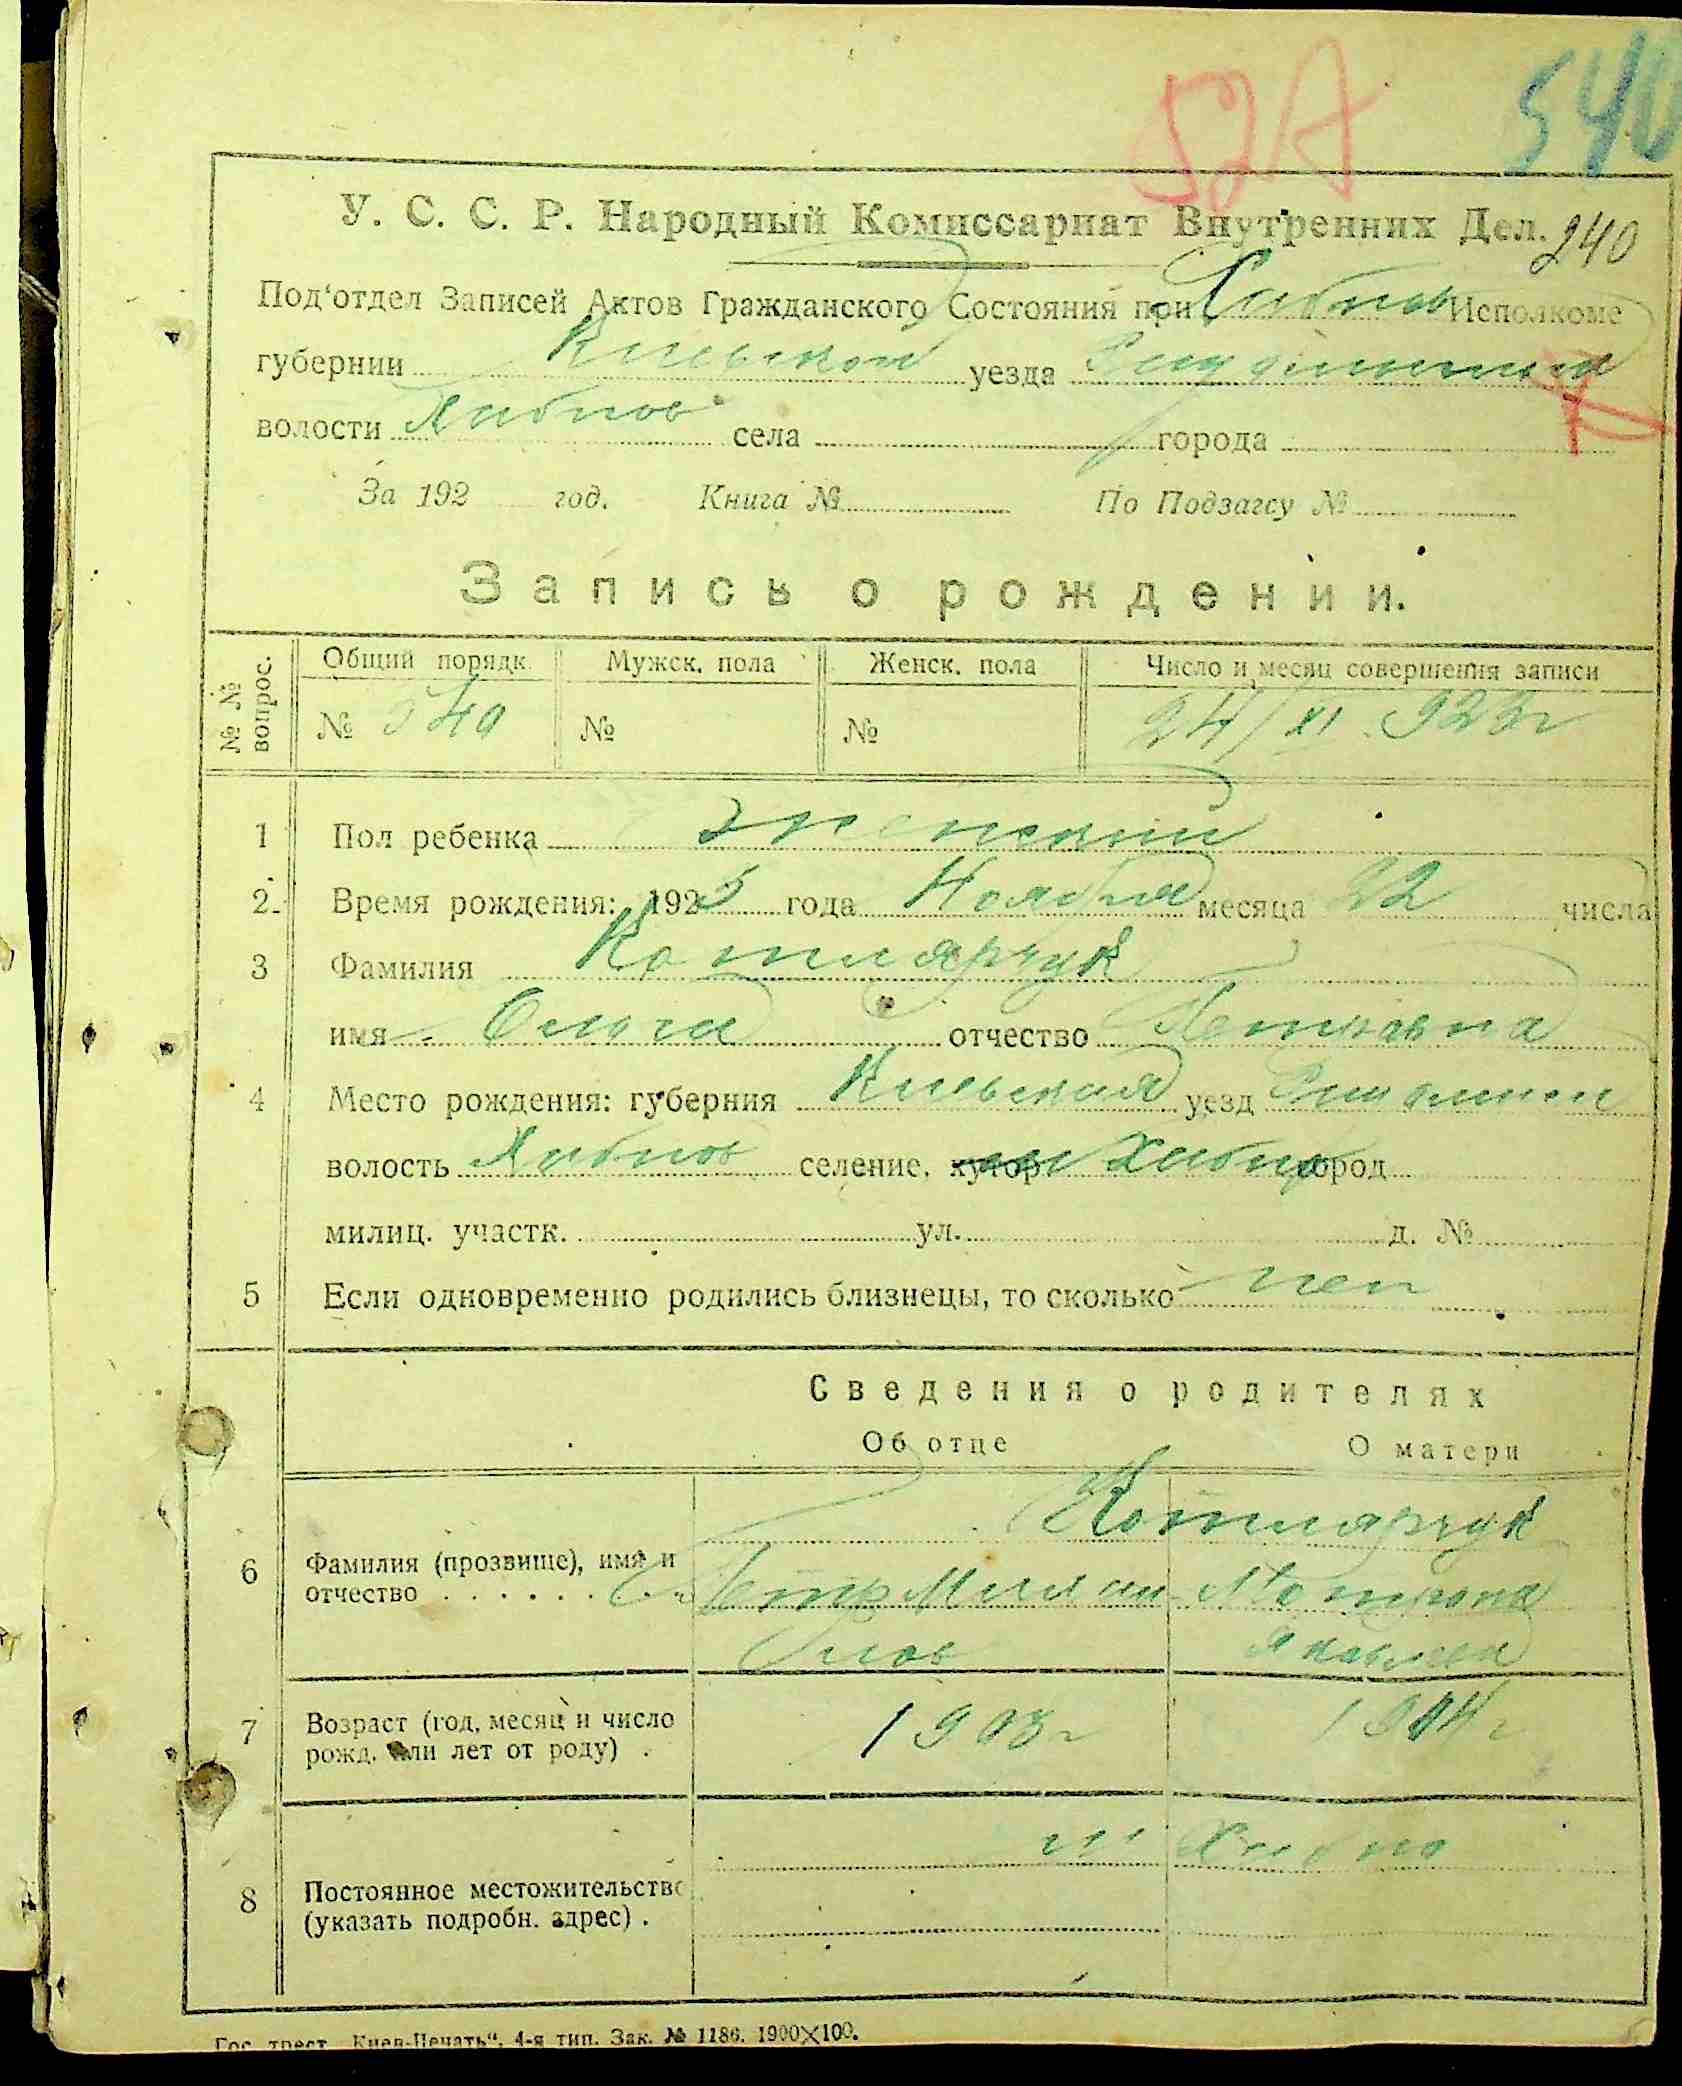 52А 540
У. С. С. Р. Народный Комиссариат Внутренних Дел. 240
Под'отдел Записей Актов Гражданского Состояния при Хабнов Исполкоме
губернии Киевской уезда
волости Хабнов села города
За 192 год. Книга № По Подзагсу №
Запись о рождении.
№ № вопрос. Общий порядк. Мужск. пола Женск. пола Число и месяц совершения записи
№ 540 № № 24/XI 923г
1 Пол ребенка женский
2. Время рождения: 192 года Ноября месяца 22 числа
3 Фамилия Котлярчук
имя Ольга отчество Петровна
4 Место рождения: губерния Киевская уезд
волость Хабнов селение, хутор м Хабно город
милиц. участк. ул. д. №
5 Если одновременно родились близнецы, то сколько нет
Сведения о родителях
Об отце О матери
Котлярчук
6 Фамилия (прозвище), имя и Петр Мотрона
отчество . . . . . . Яковлевна
7 Возраст (год, месяц и число 1903г 1904г
рожд. или лет от роду) .
м Хабно
8 Постоянное местожительство
(указать подробн. адрес) .
Гос. трест „Киев-Печать“. 4-я тип. Зак. № 1186. 1900X100.